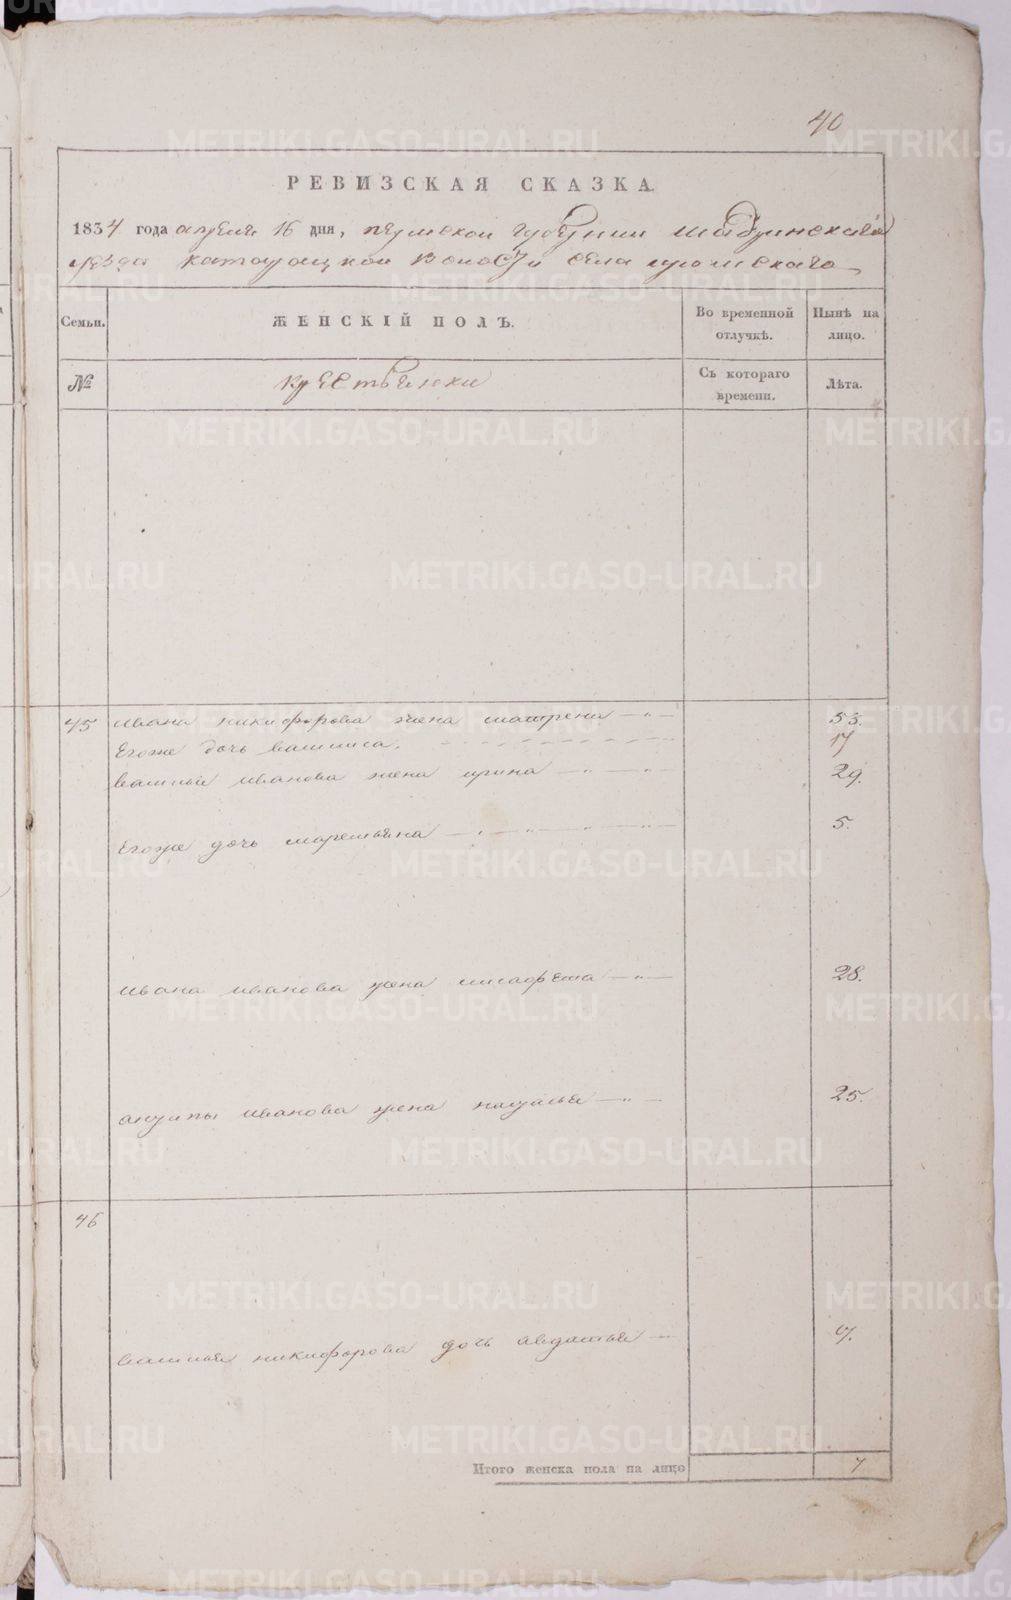 40
РЕВИЗСКАЯ СКАЗКА.
1834 года апреля 16 дня, пермской губернии шадринскаго
уезда катайской волости села
Семьи. ЖЕНСКІЙ ПОЛЪ. Во временной отлучкѣ. Нынѣ на лицо.
№ крестьянки Съ котораго времени. Лѣта.
45 ивана никифорова жена матрена 53.
Егоже дочь василиса. 17
василья иванова жена ирина 29.
Егоже дочь маремьяна 5.
ивана иванова жена 28.
антипы иванова жена наталья 25.
46
василья никифорова дочь авдотья 9.
Итого женска пола на лицо 7
METRIKI.GASO-URAL.RU